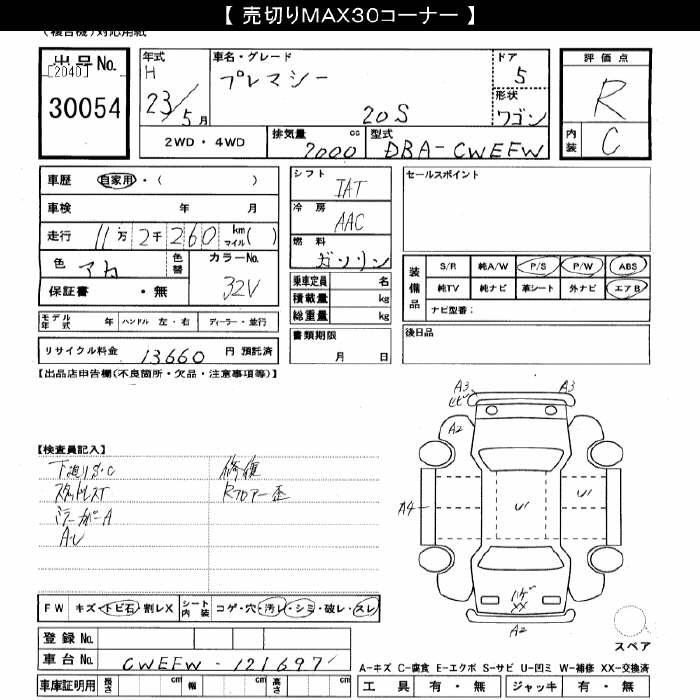 【 売切りMAX30コーナー 】
(複合機)対応用紙
出品No.
[2040]
30054
年式
H
23/5月
車名・グレード
プレマシー
20S
ドア
5
形状
ワゴン
評価点
R
内装
C
2WD・4WD
排気量
cc
2000
型式
DBA-CWEFW
車歴 自家用・( )
車検 年 月
走行 11万2千260 km マイル( )
色 アカ
色替
カラーNo.
32V
保証書 ・無
モデル年式 年 ハンドル 左・右 ディーラー・並行
リサイクル料金 13660 円 預託済
シフト
IAT
冷房
AAC
燃料
ガソリン
乗車定員 名
積載量 kg
総重量 kg
書類期限
月 日
セールスポイント
装備品
S/R 純A/W P/S P/W ABS
純TV 純ナビ 革シート 外ナビ エアB
ナビ型番:
後日品
【出品店申告欄(不良箇所・欠品・注意事項等)】
【検査員記入】
下廻りS・C
スタッドレスT
ミラーカバーA
A・U
修復
Rフロアー歪
A3
ヒビ
A3
A2
A4
U1
U1
ハゲ
XX
A2
スペア
FW キズ・トビ石・割レX
シート内装 コゲ・穴・汚レ・シミ・破レ・スレ
登録No.
車台No. CWEFW-121697
車庫証明用 長さ cm 幅 cm 高さ cm
A-キズ C-腐食 E-エクボ S-サビ U-凹ミ W-補修 XX-交換済
工具 有・無 ジャッキ 有・無